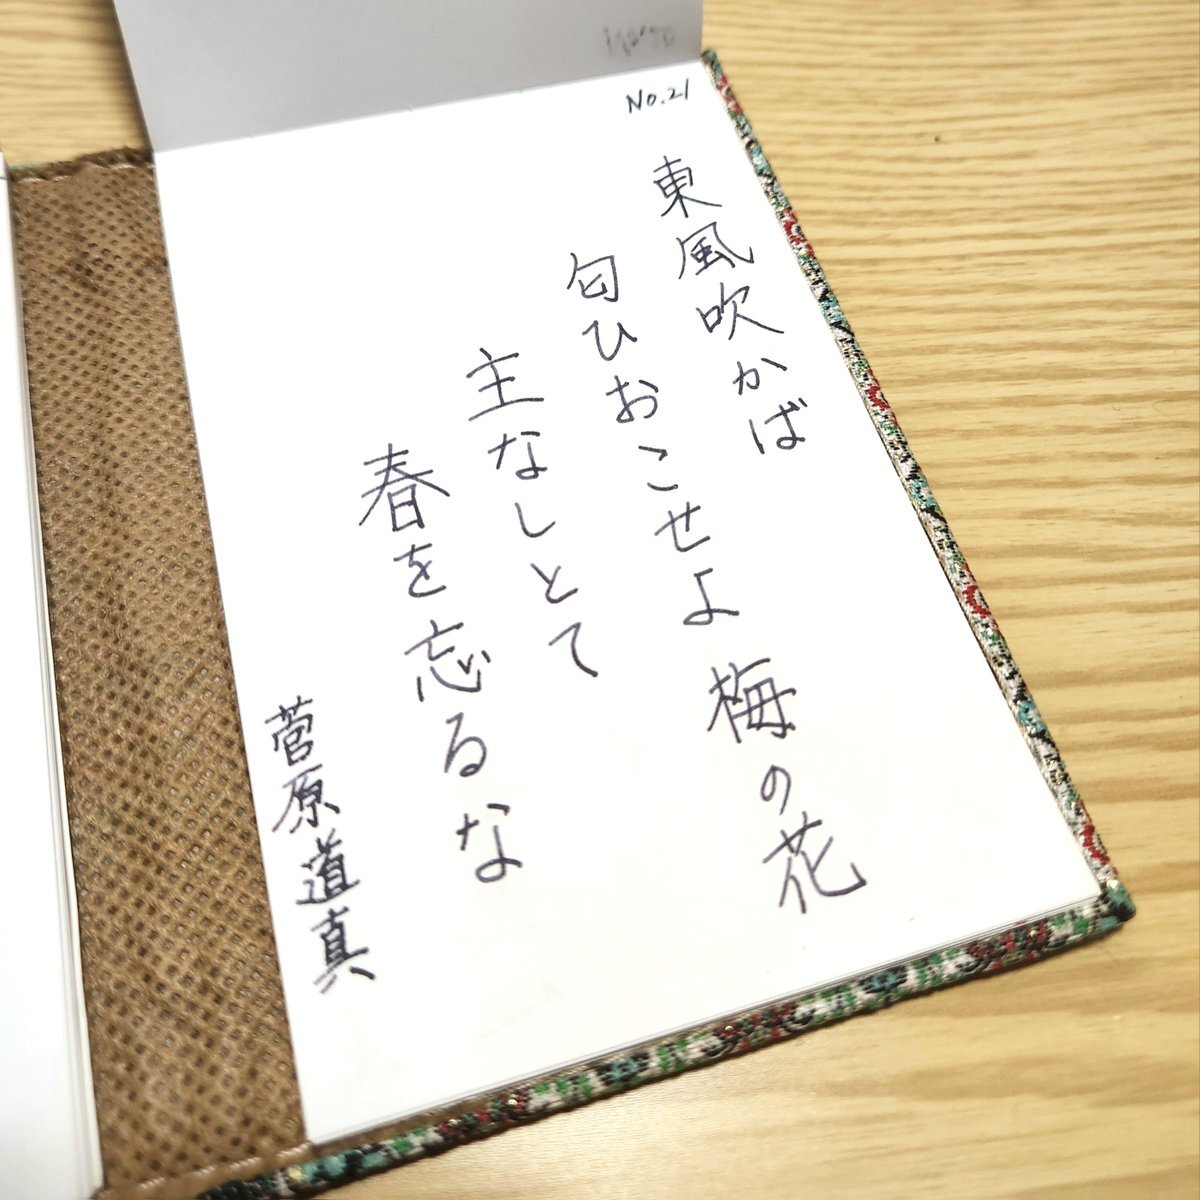 No.21
東風吹かば
匂ひおこせよ 梅の花
主なしとて
春を忘るな
菅原道真